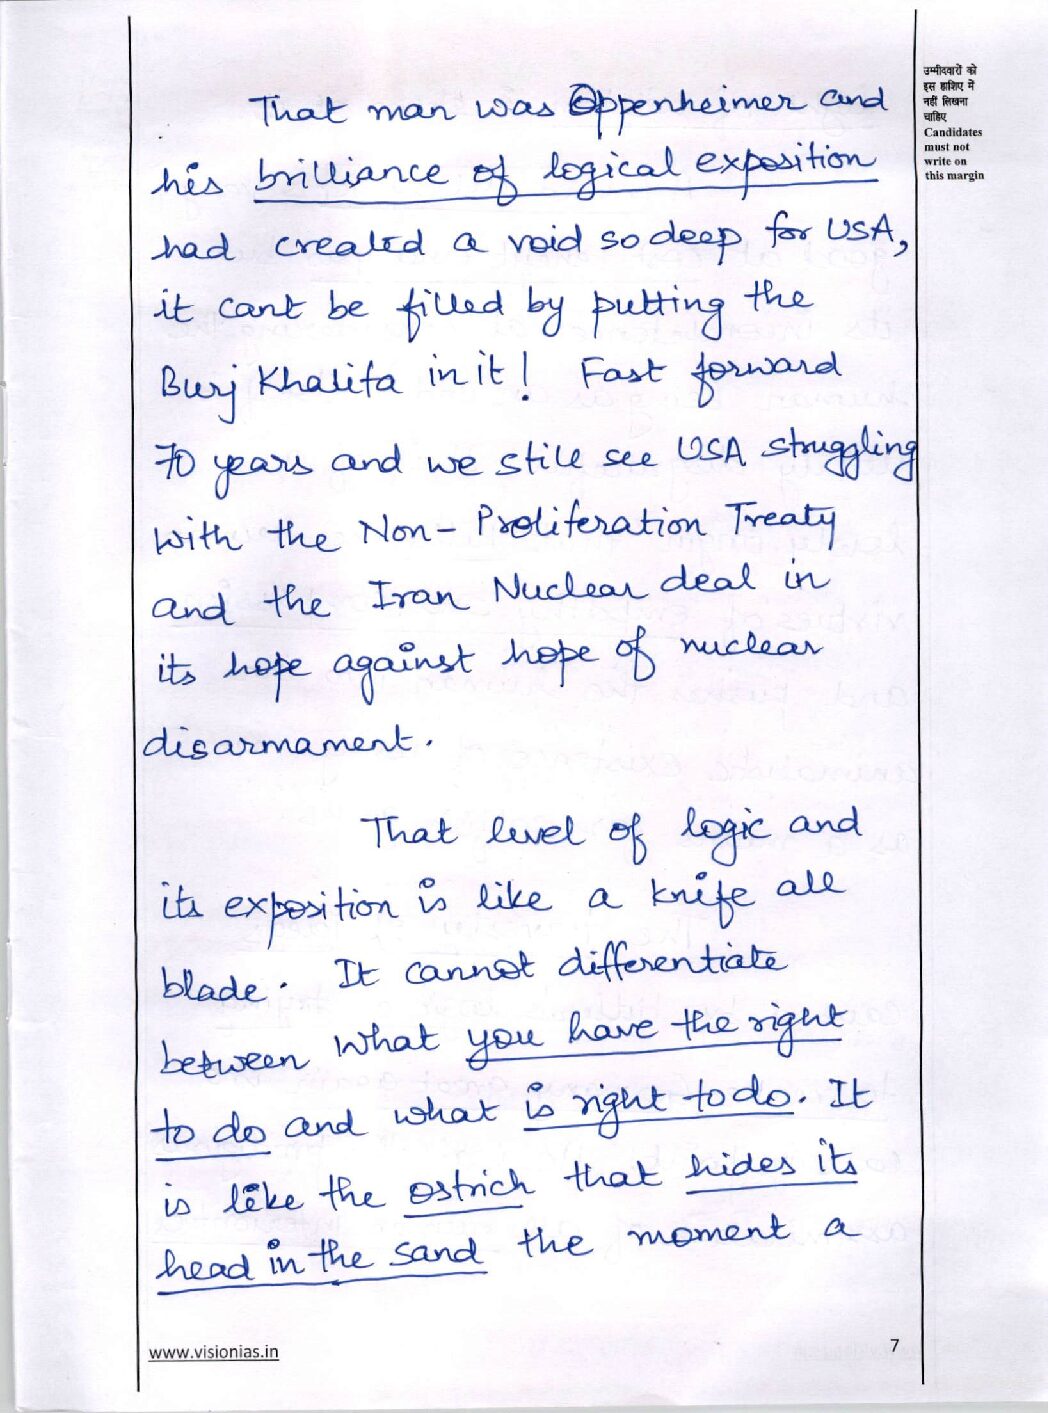 उम्मीदवारों को
इस हाशिए में
नहीं लिखना
चाहिए
Candidates
must not
write on
this margin
That man was Oppenheimer and
his brilliance of logical exposition
had created a void so deep for USA,
it cant be filled by putting the
Burj Khalifa in it! Fast forward
70 years and we still see USA struggling
with the Non-Proliferation Treaty
and the Iran Nuclear deal in
its hope against hope of nuclear
disarmament.
That level of logic and
its exposition is like a knife all
blade. It cannot differentiate
between what you have the right
to do and what is right to do. It
is like the ostrich that hides its
head in the sand the moment a
www.visionias.in
7